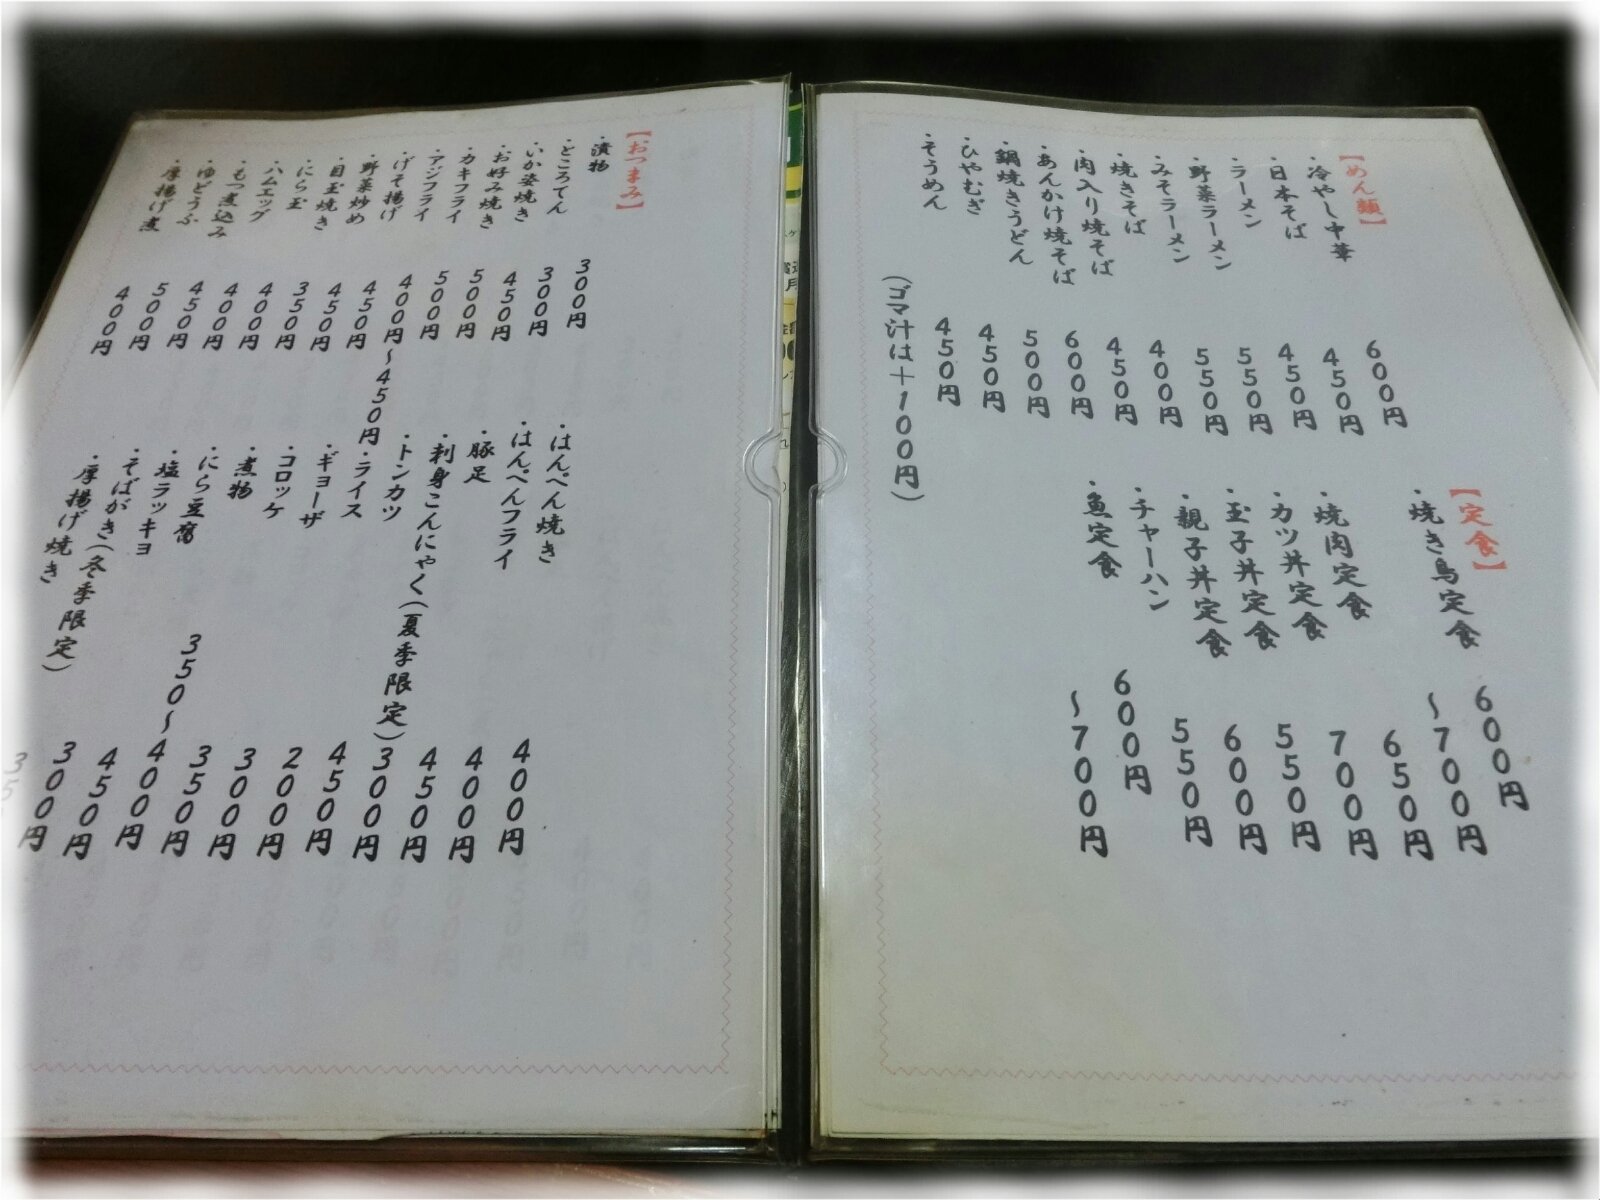 【めん類】
・冷やし中華　600円
・日本そば　450円
・ラーメン　450円
・野菜ラーメン　550円
・みそラーメン　550円
・焼きそば　400円
・肉入り焼そば　450円
・あんかけ焼そば　600円
・鍋焼きうどん　500円
・ひやむぎ　450円
・そうめん　450円
（ゴマ汁は＋100円）
【定食】
・焼き鳥定食　600円
～700円
・焼肉定食　650円
・カツ丼定食　700円
・玉子丼定食　550円
・親子丼定食　600円
・チャーハン　550円
・魚定食　600円
～700円
【おつまみ】
・漬物　300円
・ところてん　300円
・いか姿焼き　450円
・お好み焼き　500円
・カキフライ　500円
・アジフライ　400円～450円
・げそ揚げ　450円
・野菜炒め　450円
・目玉焼き　350円
・にら玉　400円
・ハムエッグ　400円
・もつ煮込み　450円
・ゆどうふ　500円
・厚揚げ煮　400円
・はんぺん焼き　400円
・はんぺんフライ　400円
・豚足　450円
・刺身こんにゃく（夏季限定）　300円
・トンカツ　450円
・ライス　200円
・ギョーザ　300円
・コロッケ　350円
・煮物　350～400円
・にら豆腐　450円
・塩ラッキョ　300円
・そばがき（冬季限定）　35
・厚揚げ焼き